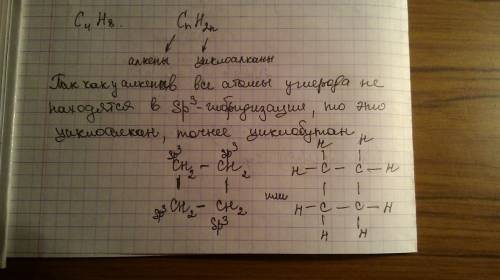 C₄H₈. CₙH₂ₙ
алкены циклоалканы
Так как у алкенов все атомы углерода не
находятся в Sp³-гибридизации, то это
циклоалкан, точнее циклобутан
Sp³ Sp³ H H
CH₂ – CH₂ H – C – C – H
или
Sp³ CH₂ – CH₂ H – C – C – H
Sp³ H H